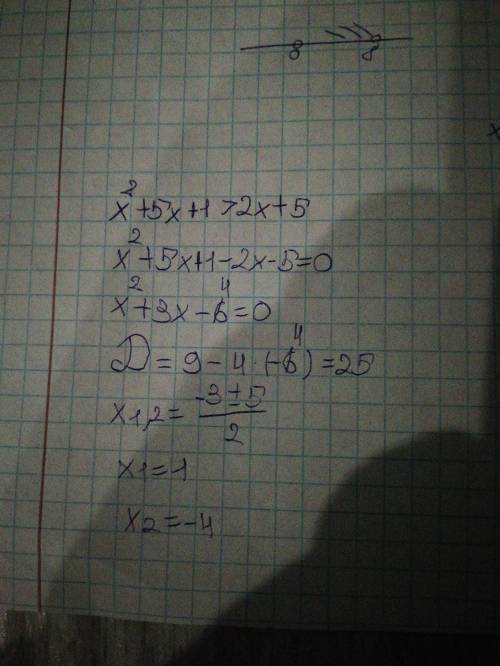 8 8
x
x²+5x+1>2x+5
x²+5x+1-2x-5=0
x²+3x-4=0
D=9-4·(-4)=25
x1,2=-3±5/2
x1=1
x2=-4